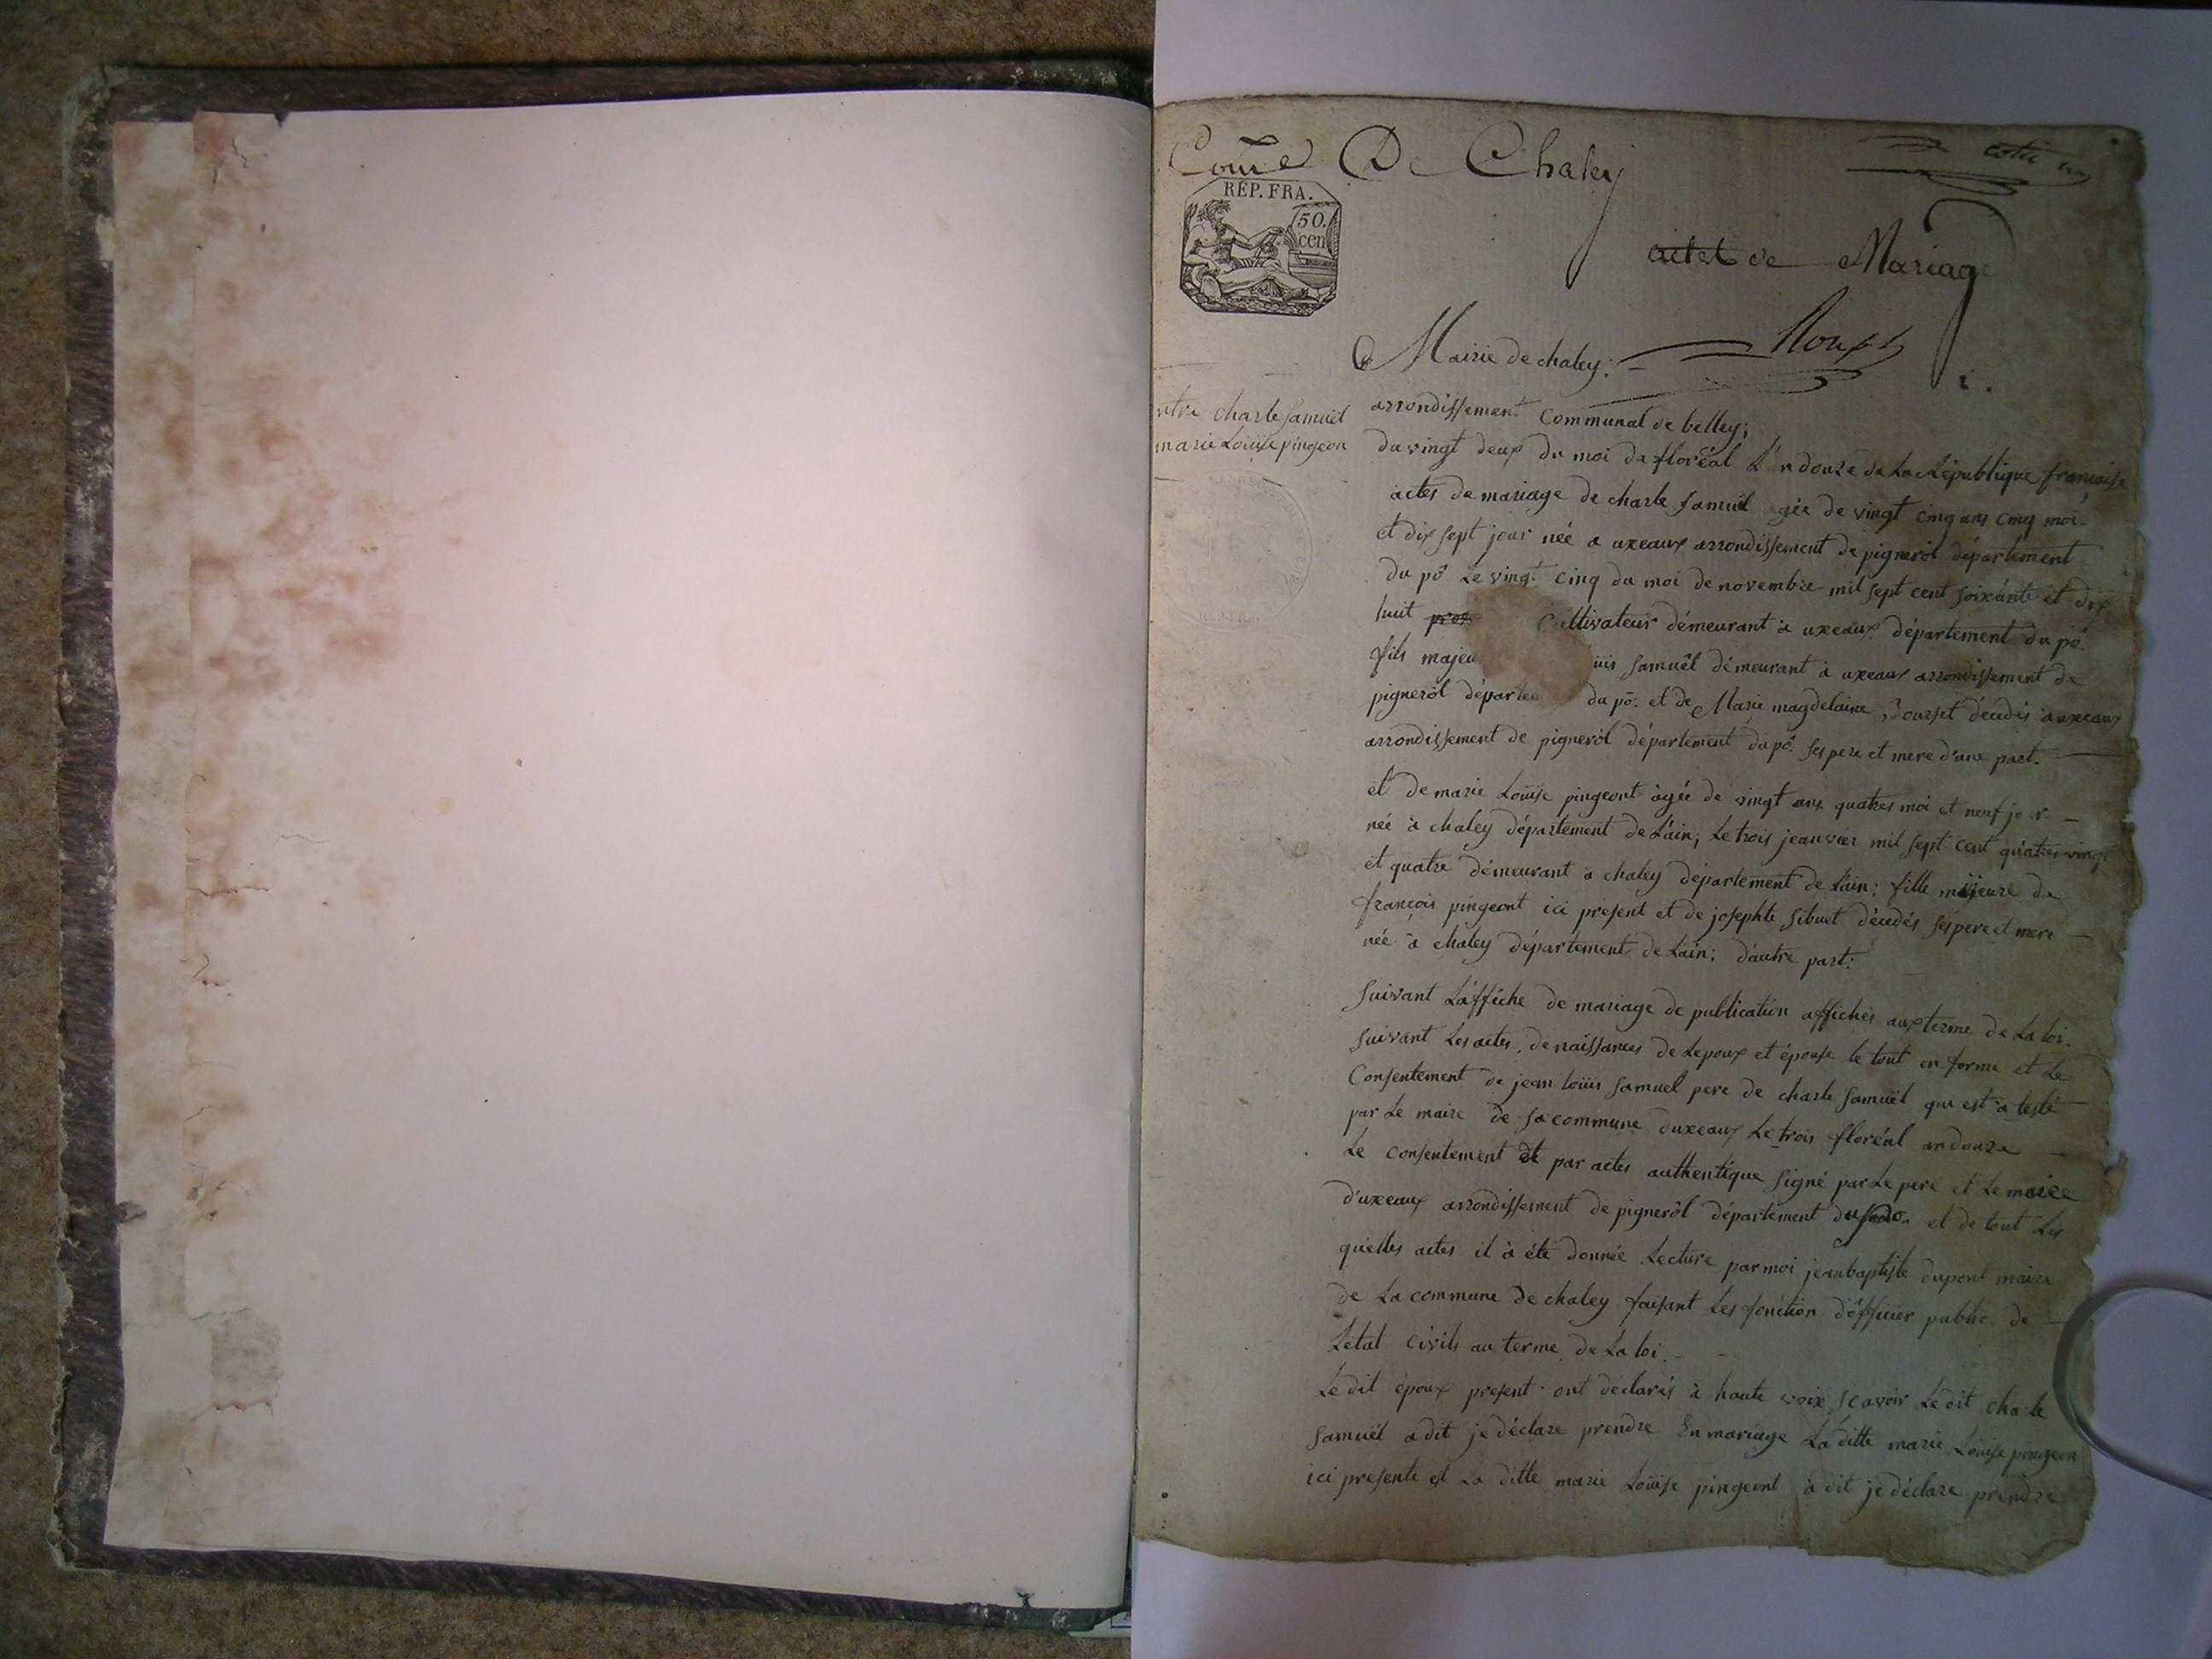 Com̃e De Chaley
REP. FRA.
50.
cen
actes de Mariage
Mairie de chaley:
1.
ntre charle Samuël
marie Loüise pingeon
arrondissement Communal de belley;
du vingt deux du moi de floréal L'an douze de La République française
actes de mariage de charle Samuël agée de vingt cinq ans cinq moi
et dix sept jour née a uxeaux arrondissement de pignerôl département
du pô Le vingt cinq du moi de novembre mil sept cent soixante et dix
huit Cultivateur démeurant à uxeaux département du pô.
fils majeu uis Samuêl démeurant à uxeaux arrondissement de
pignerôl départem du pô. et de Marie magdelaine décédés a uxeaux
arrondissement de pignerôl département du pô. ses pere et mere d'une part.
et de marie Loüise pingeont àgée de vingt ans quatres moi et neuf jour
née à chaley département de L'ain; Le trois jeanvier mil sept cent quatres vingt
et quatre démeurant à chaley département de L'ain; fille majeure de
françois pingeont ici present et de josephte Sibuet décédés ses pere et mere
née à chaley département de L'ain; d'autre part:
Suivant L'affiche de mariage de publication affichés aux terme de La loi.
Suivant Les actes de naissances de Lepoux et épouse le tout en forme et Le
Consentement de jean loüis Samuel pere de charle Samuël qui est a testé
par Le maire de sa commune duxeaux Le trois floréal an douze
Le consentement et par actes authentique signé par Le pere et Le maire
d'uxeaux arrondissement de pignerôl département et de tout Les
quielles actes il à été donnée Lecture par moi jeanbaptiste dupont maire
de La commune de chaley faisant Les fonction d'officier public de
Létat civils au terme de La loi.
Le dit époux present ont déclarés à haute voix scavoir Le dit charle
Samuël a dit je déclare prendre En mariage La ditte marie Loüise pingeon
ici presente et La ditte marie Loüise pingeont à dit je déclare prendre